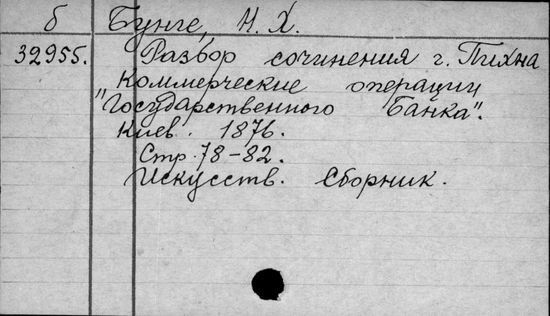 б Бунге, Н. Х.
32955. Разбор сочинения г. Пихна
Коммерческие операции
"Государственного Банка".
Киев. 1876.
Стр. 78-82.
Искусств. Сборник.